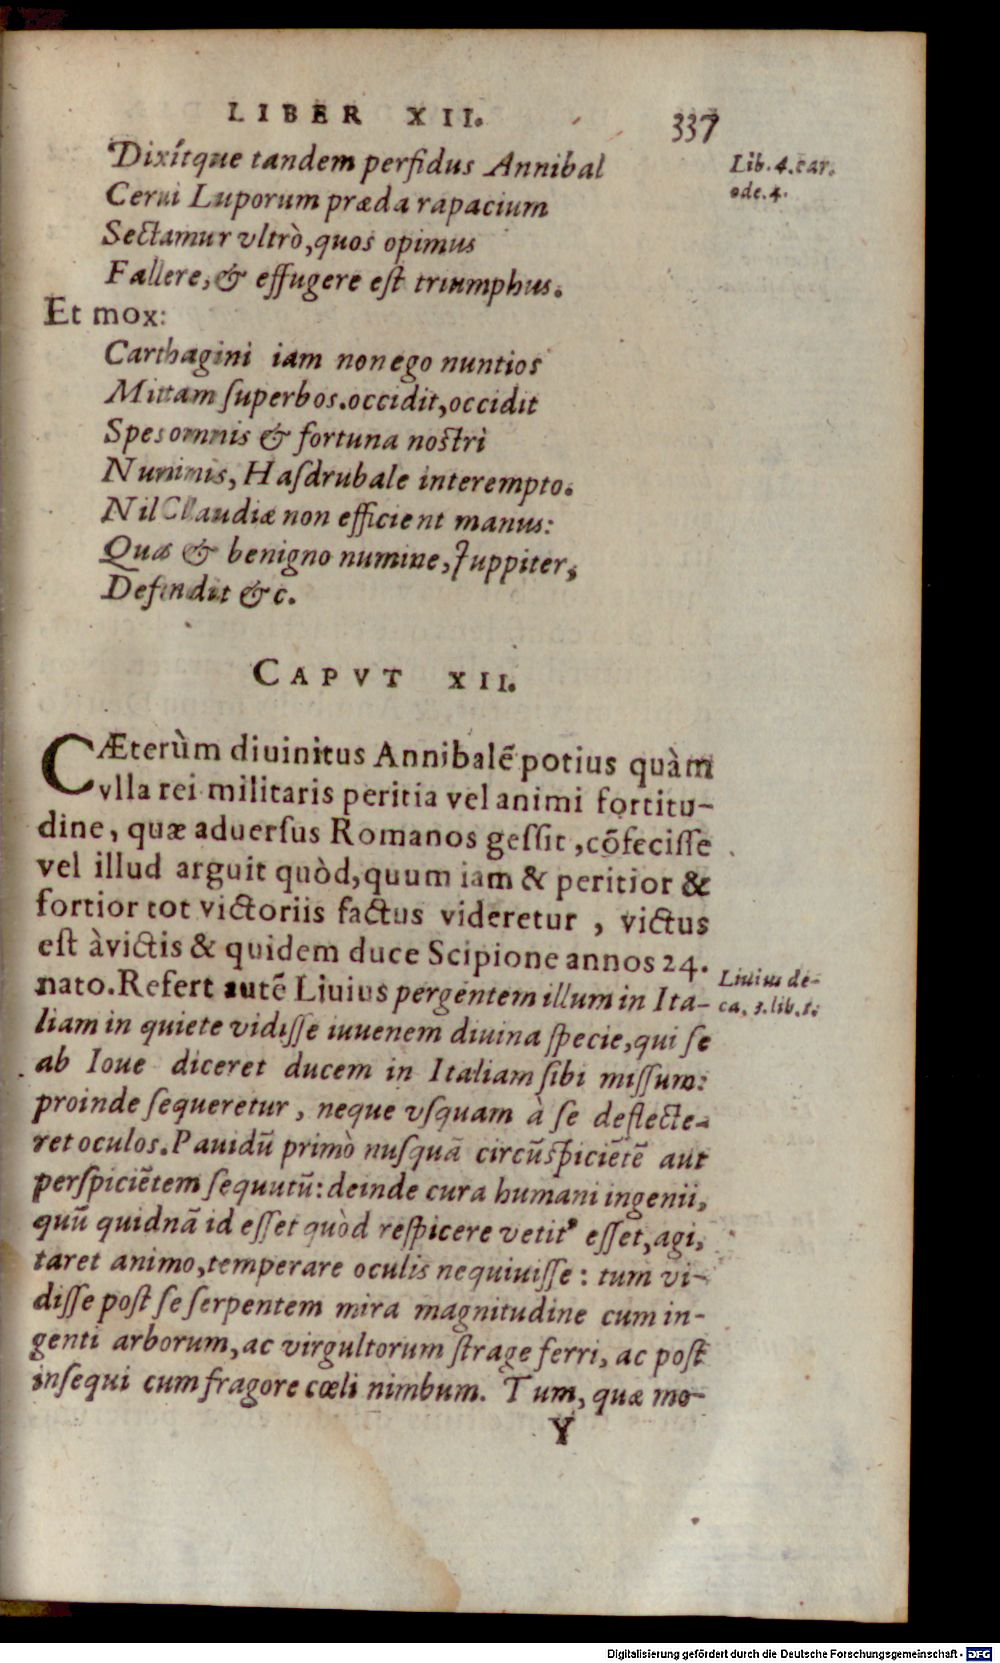 LIBER XII. 337
Dixítque tandem perfidus Annibal
Lib. 4. car.
ode. 4.
Cerui Luporum præda rapacium
Sectamur vltrò, quos opimus
Fallere, & effugere est triumphus.
Et mox:
Carthagini iam non ego nuntios
Mittam ſuperbos. occidit, occidit
Spes omnis & fortuna nostri
Numinis, Haſdrubale interempto.
Nil Claudiæ non efficient manus:
Quas & benigno numine, Juppiter,
Defendit &c.
CAPVT XII.
CÆterùm diuinitus Annibalẽ potius quàm
vlla rei militaris peritia vel animi fortitu-
dine, quæ aduerſus Romanos geſſit, cõfeciſſe
vel illud arguit quòd, quum iam & peritior &
fortior tot victoriis factus videretur, victus
eſt àvictis & quidem duce Scipione annos 24.
nato. Refert autẽ Liuius pergentem illum in Ita-
Liuius de-
ca. 3. lib. 1.
liam in quiete vidiſſe iuuenem diuina ſpecie, qui ſe
ab Ioue diceret ducem in Italiam ſibi miſſum:
proinde ſequeretur, neque vſquam à ſe deflecte-
ret oculos. Pauidũ primò nuſquã circũſpiciẽtẽ aut
perſpiciẽtem ſequutũ: deinde cura humani ingenii,
quũ quidnã id eſſet quòd reſpicere vetitꝰ eſſet, agi,
taret animo, temperare oculis nequiuiſſe: tum vi-
diſſe poſt ſe ſerpentem mira magnitudine cum in-
genti arborum, ac virgultorum ſtrage ferri, ac poſt
inſequi cum fragore cœli nimbum. Tum, quæ mo-
Y
Digitalisierung gefördert durch die Deutsche Forschungsgemeinschaft - DFG